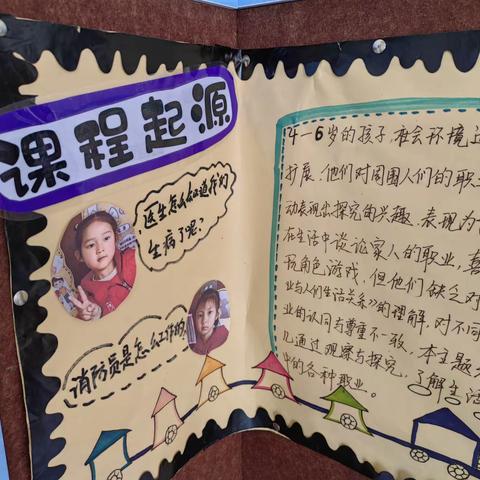 课程起源
医生怎么知道我们
生病了呢?
消防员是怎么工作的
4—6岁的孩子,社会环境
扩展.他们对周围人们的职
动表现出探究的兴趣.表现为
在生活中谈论家人的职业,喜
玩角色游戏,但他们缺乏对
业与人们生活关系》的理解,对不同
业的认同与尊重不一致,本主题
儿通过观察与探究,了解生活
中的各种职业。